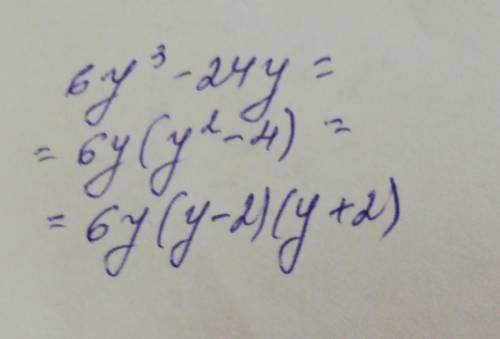 6y³ - 24y =
= 6y(y² - 4) =
= 6y(y-2)(y+2)